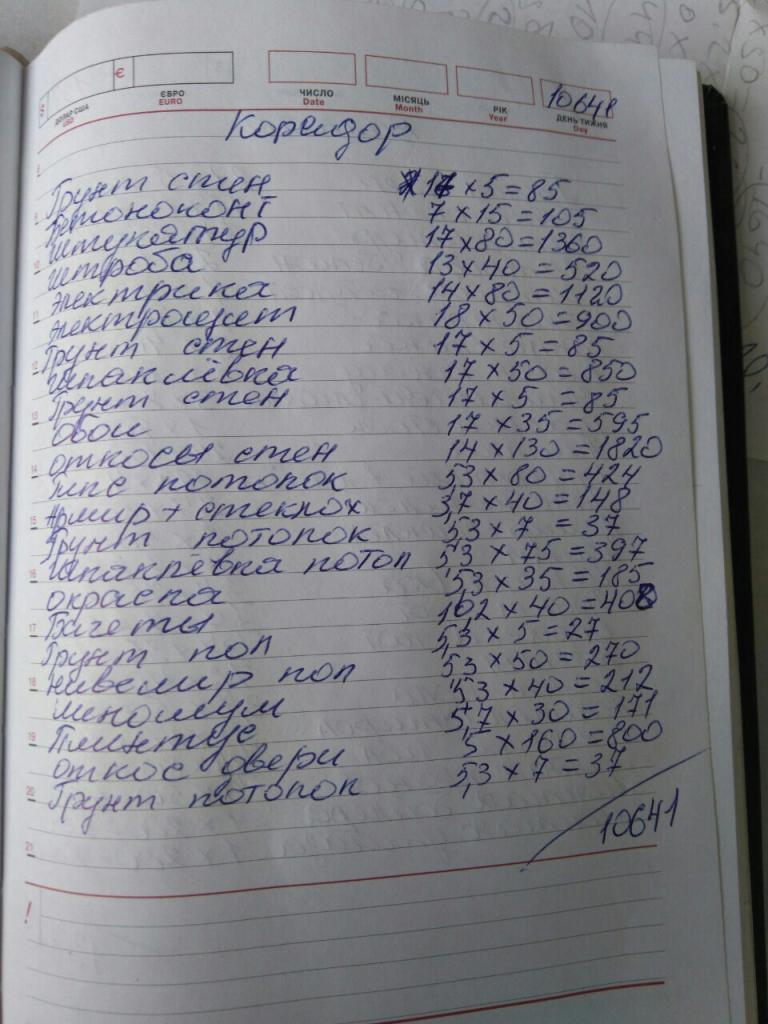 €
ДОЛАР США
USD
ЄВРО
EURO
ЧИСЛО
Date
МІСЯЦЬ
Month
РІК
Year
10648
ДЕНЬ ТИЖНЯ
Day
Коридор
Грунт стен 17 x 5 = 85
бетоноконт 7 x 15 = 105
штукатур 17 x 80 = 1360
штроба 13 x 40 = 520
электрика 14 x 80 = 1120
электрощит 18 x 50 = 900
Грунт стен 17 x 5 = 85
шпаклёвка 17 x 50 = 850
Грунт стен 17 x 5 = 85
Обои 17 x 35 = 595
откосы стен 14 x 130 = 1820
гпс потолок 5,3 x 80 = 424
Армир + стеклох 3,7 x 40 = 148
Грунт потолок 5,3 x 7 = 37
шпаклёвка потол 5,3 x 75 = 397
окраска 5,3 x 35 = 185
Багеты 10,2 x 40 = 408
Грунт пол 5,3 x 5 = 27
нивелир пол 5,3 x 50 = 270
линолиум 5,3 x 40 = 212
Плинтус 5,7 x 30 = 171
откос двери 5 x 160 = 800
Грунт потолок 5,3 x 7 = 37
10641
!